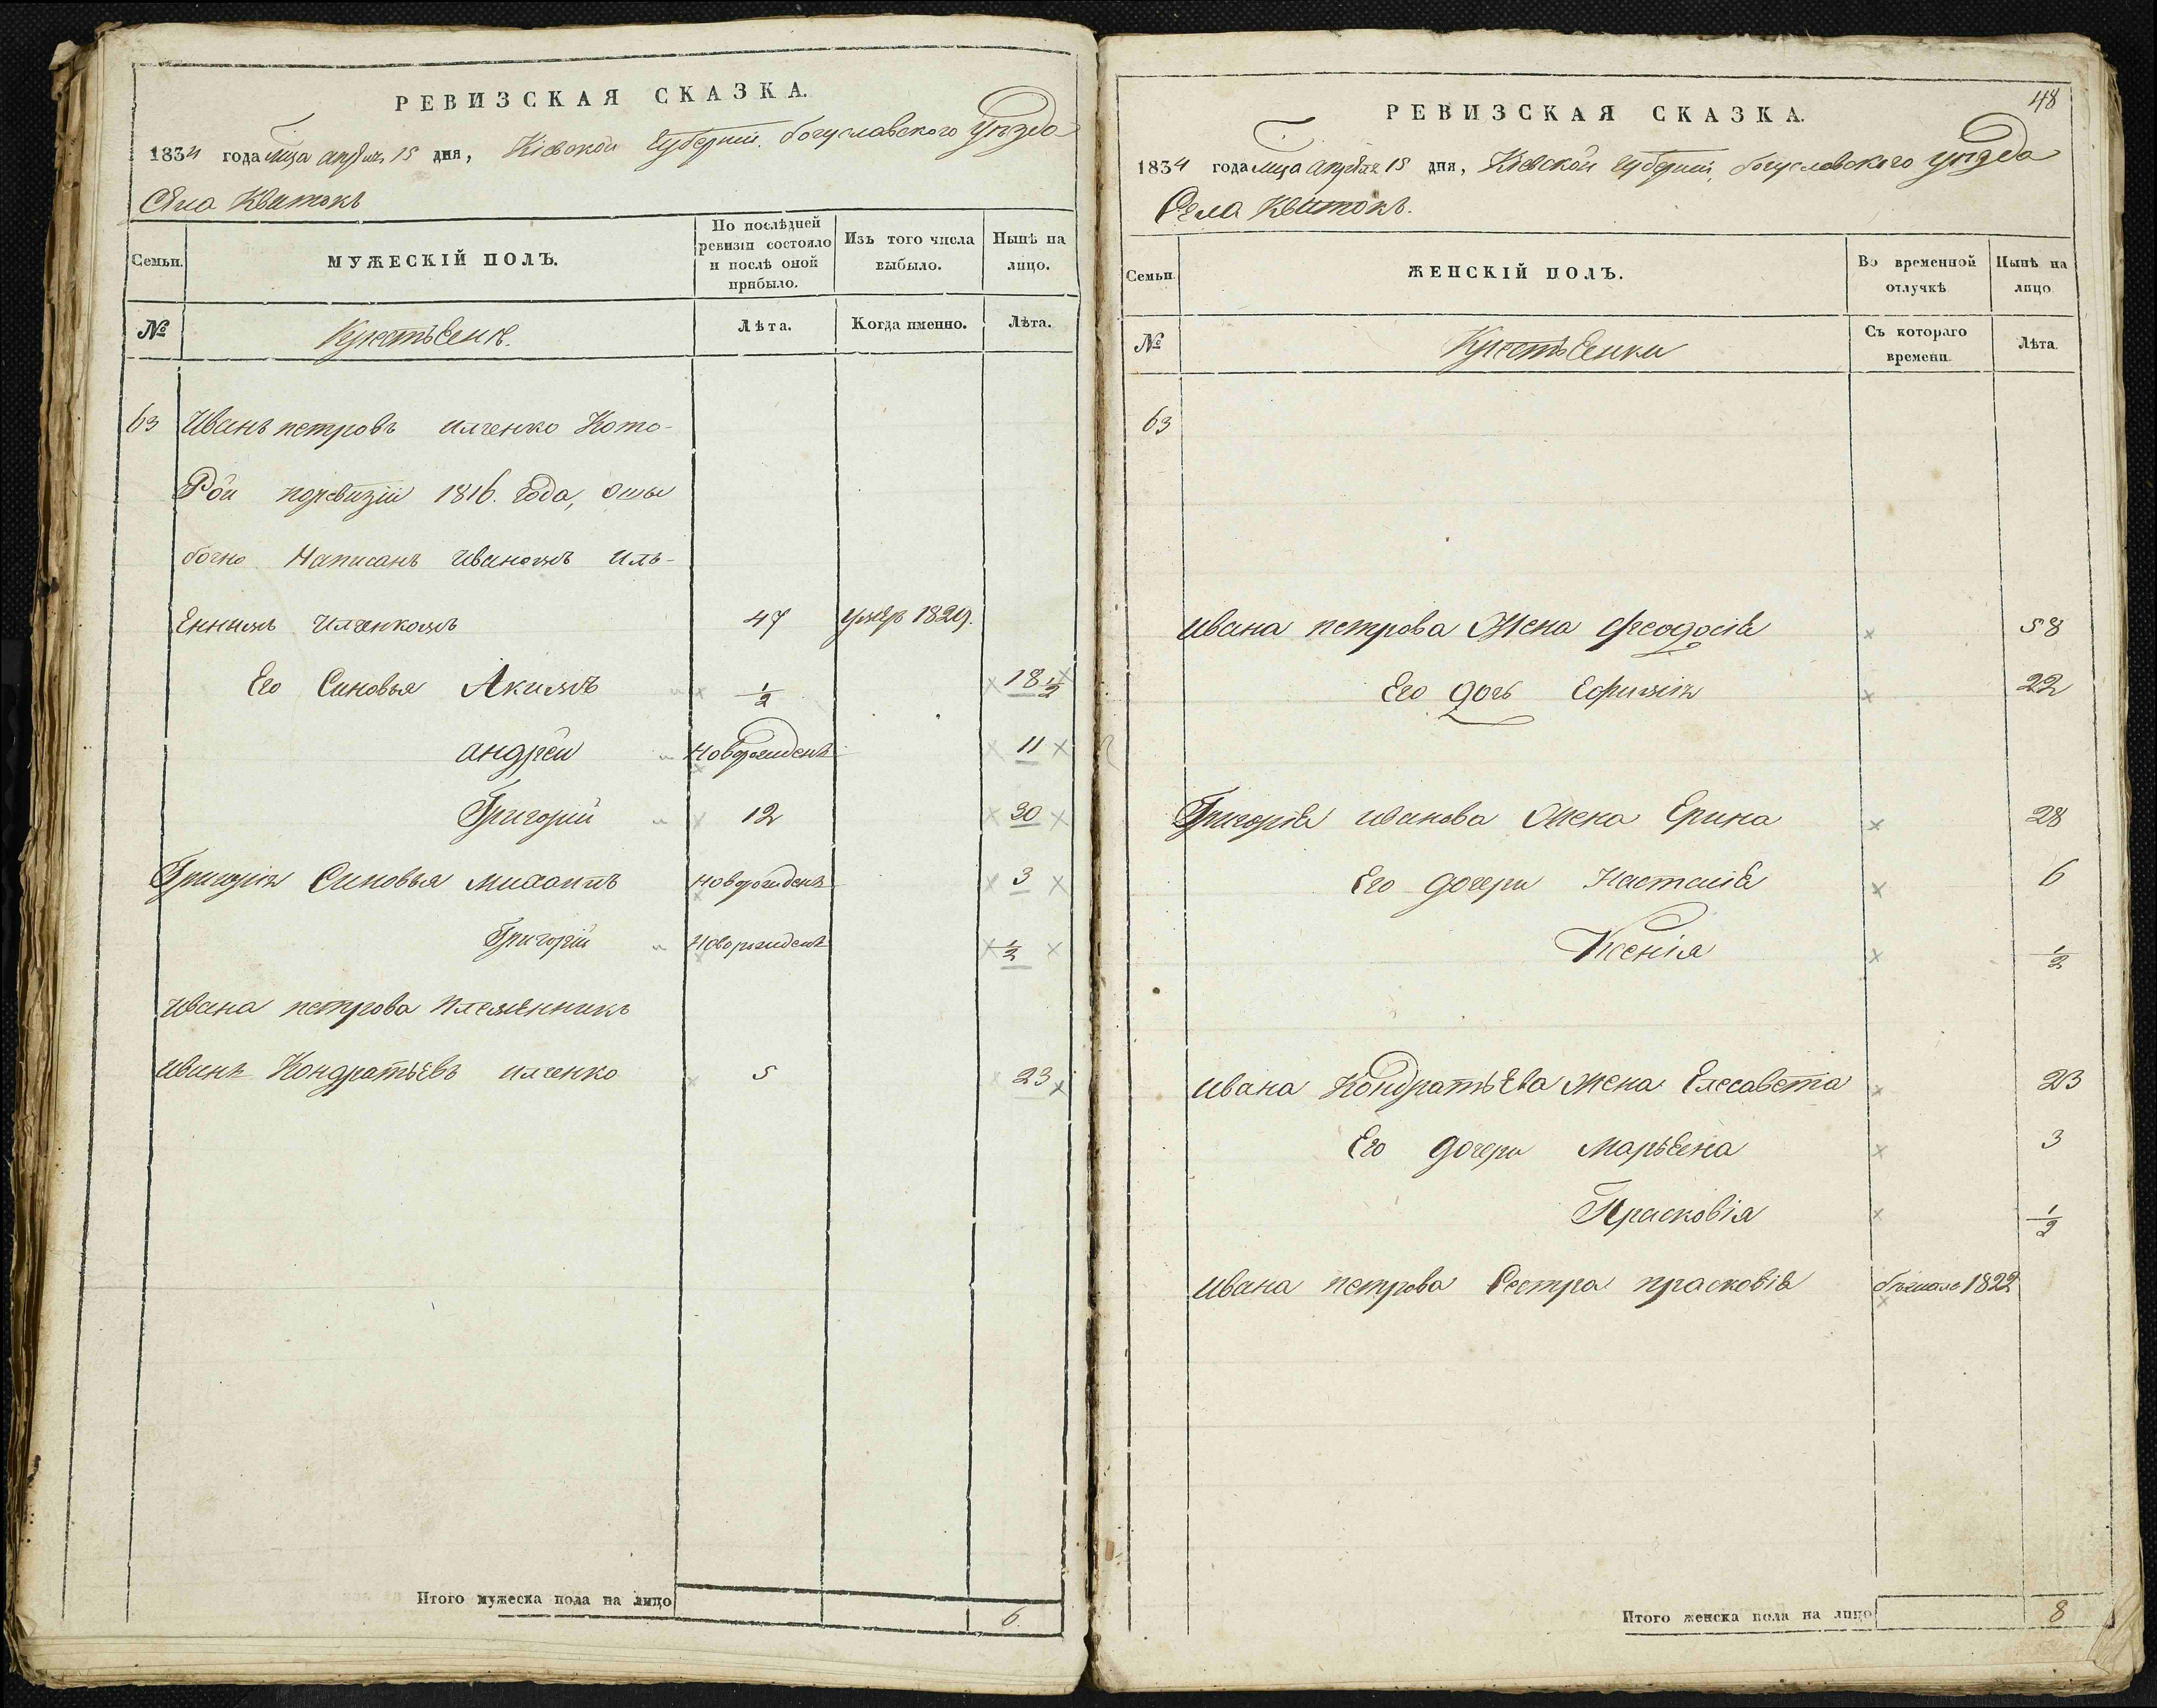 РЕВИЗСКАЯ СКАЗКА.
1834 года мца апреля 15 дня, Кіевской Губерніи, богуславского уезда
Села Квитокъ
Семьи.
МУЖЕСКІЙ ПОЛЪ.
По послѣдней ревизіи состояло и послѣ оной прибыло.
Изъ того числа выбыло.
Нынѣ на лицо.
№
Крестьѣне.
Лѣта.
Когда именно.
Лѣта.
63 Иванъ петровъ илченко Кото-
Рой поревизіи 1816. Года, ошы
бочно Написанъ Иваномъ Иль-
Еннимъ Илченкомъ 47 умер 1829.
Его Синовья Акимъ 1/2 18 1/2
андрей Новорожденъ 11
Григорій 12 30
Григорія Синовья михаилъ новорожденъ 3
Григорій Новорожденъ 1/2
Ивана петрова племѣнникъ
Иванъ Кондратьѣвъ илченко 5 23
Итого мужеска пола на лицо 6.
48
РЕВИЗСКАЯ СКАЗКА.
1834 года мца апреля 15 дня, Кіевской Губерніи, богуславского уезда
Села Квитокъ.
Семьи
ЖЕНСКІЙ ПОЛЪ.
Во временной отлучкѣ
Нынѣ на лицо
№
Крестьѣнки
Съ котораго времени
Лѣта.
63
Ивана петрова Жена феодосія 58
Его дочь Ефимія 22
Григорія иванова Жена Ерина 28
Его дочери Настасія 6
Ксенія 1/2
Ивана Кондратьѣва жена Елесавета 23
Его дочери Марьѣна 3
Прасковія 1/2
Ивана петрова Сестра прасковія бѣжала 1822
Итого женска пола на лицо 8